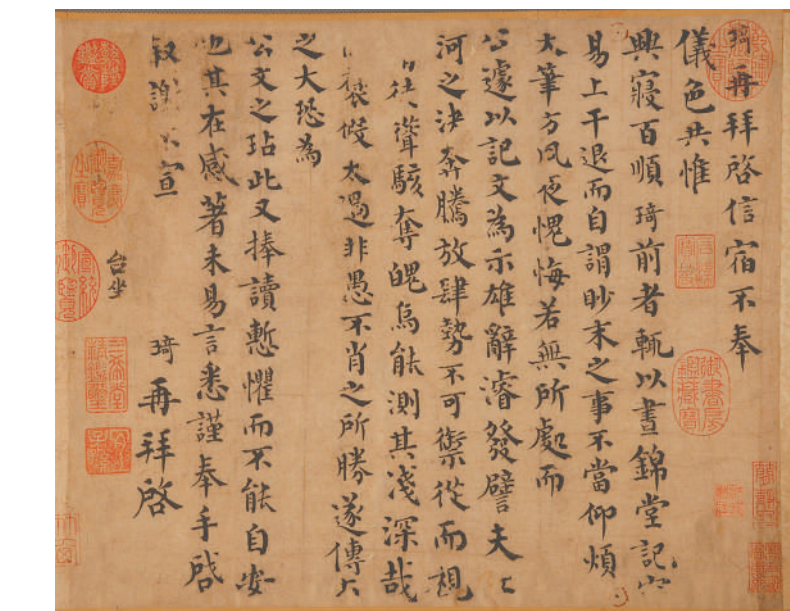 琦再拜啓信宿不奉
儀色共惟
興寢百順琦前者輒以晝錦堂記容
易上干退而自謂眇末之事不當仰煩
大筆方夙夜愧悔若無所處而
公遽以記文為示雄辭濬發譬夫
河之決奔騰放肆勢不可禦從而視
者徒聳駭奪魄烏能測其淺深哉
褒假太過非愚不肖之所勝遂傳
之大恐為
公文之玷此又捧讀慙懼而不能自安
也其在感著未易言悉謹奉手啓
叙謝不宣 琦再拜啓
台坐
御書房鑑藏寶
三希堂精鑑璽
宜子孫